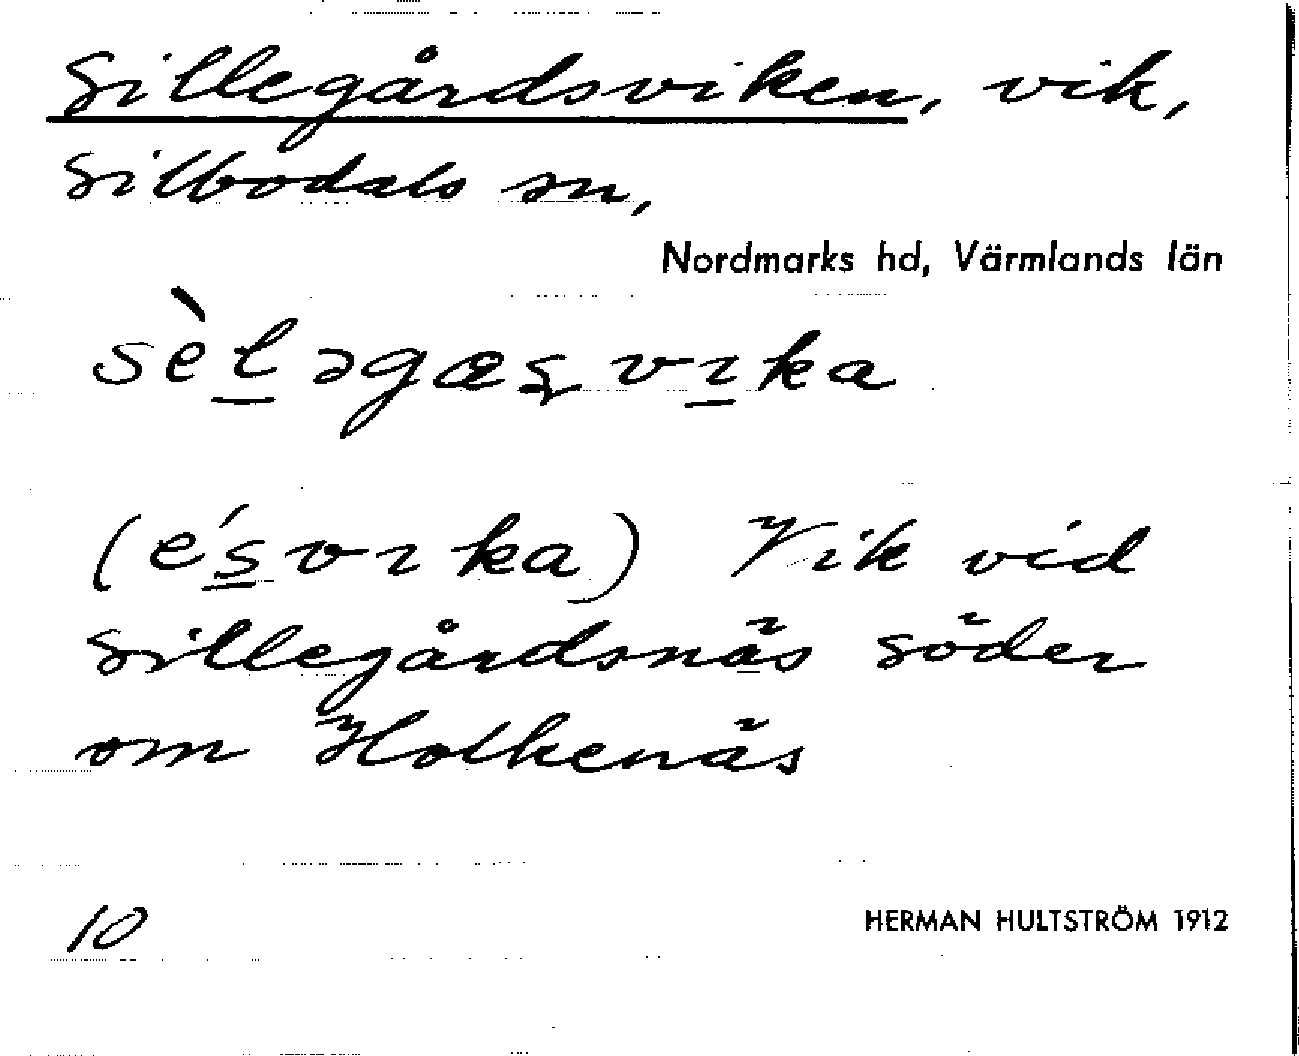 Sillegårdsviken, vik,
Silbodals sn,
Nordmarks hd, Värmlands län
sèl̲əgæʂvı̲ka
(és̲vıka) Vik vid
Sillegårdsnäs söder
om Holkenäs
10
HERMAN HULTSTRÖM 1912